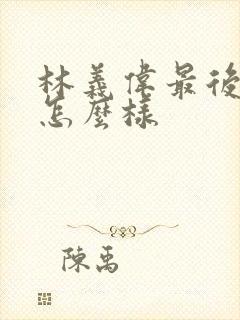 林義偉最後
怎麼樣
陳禹